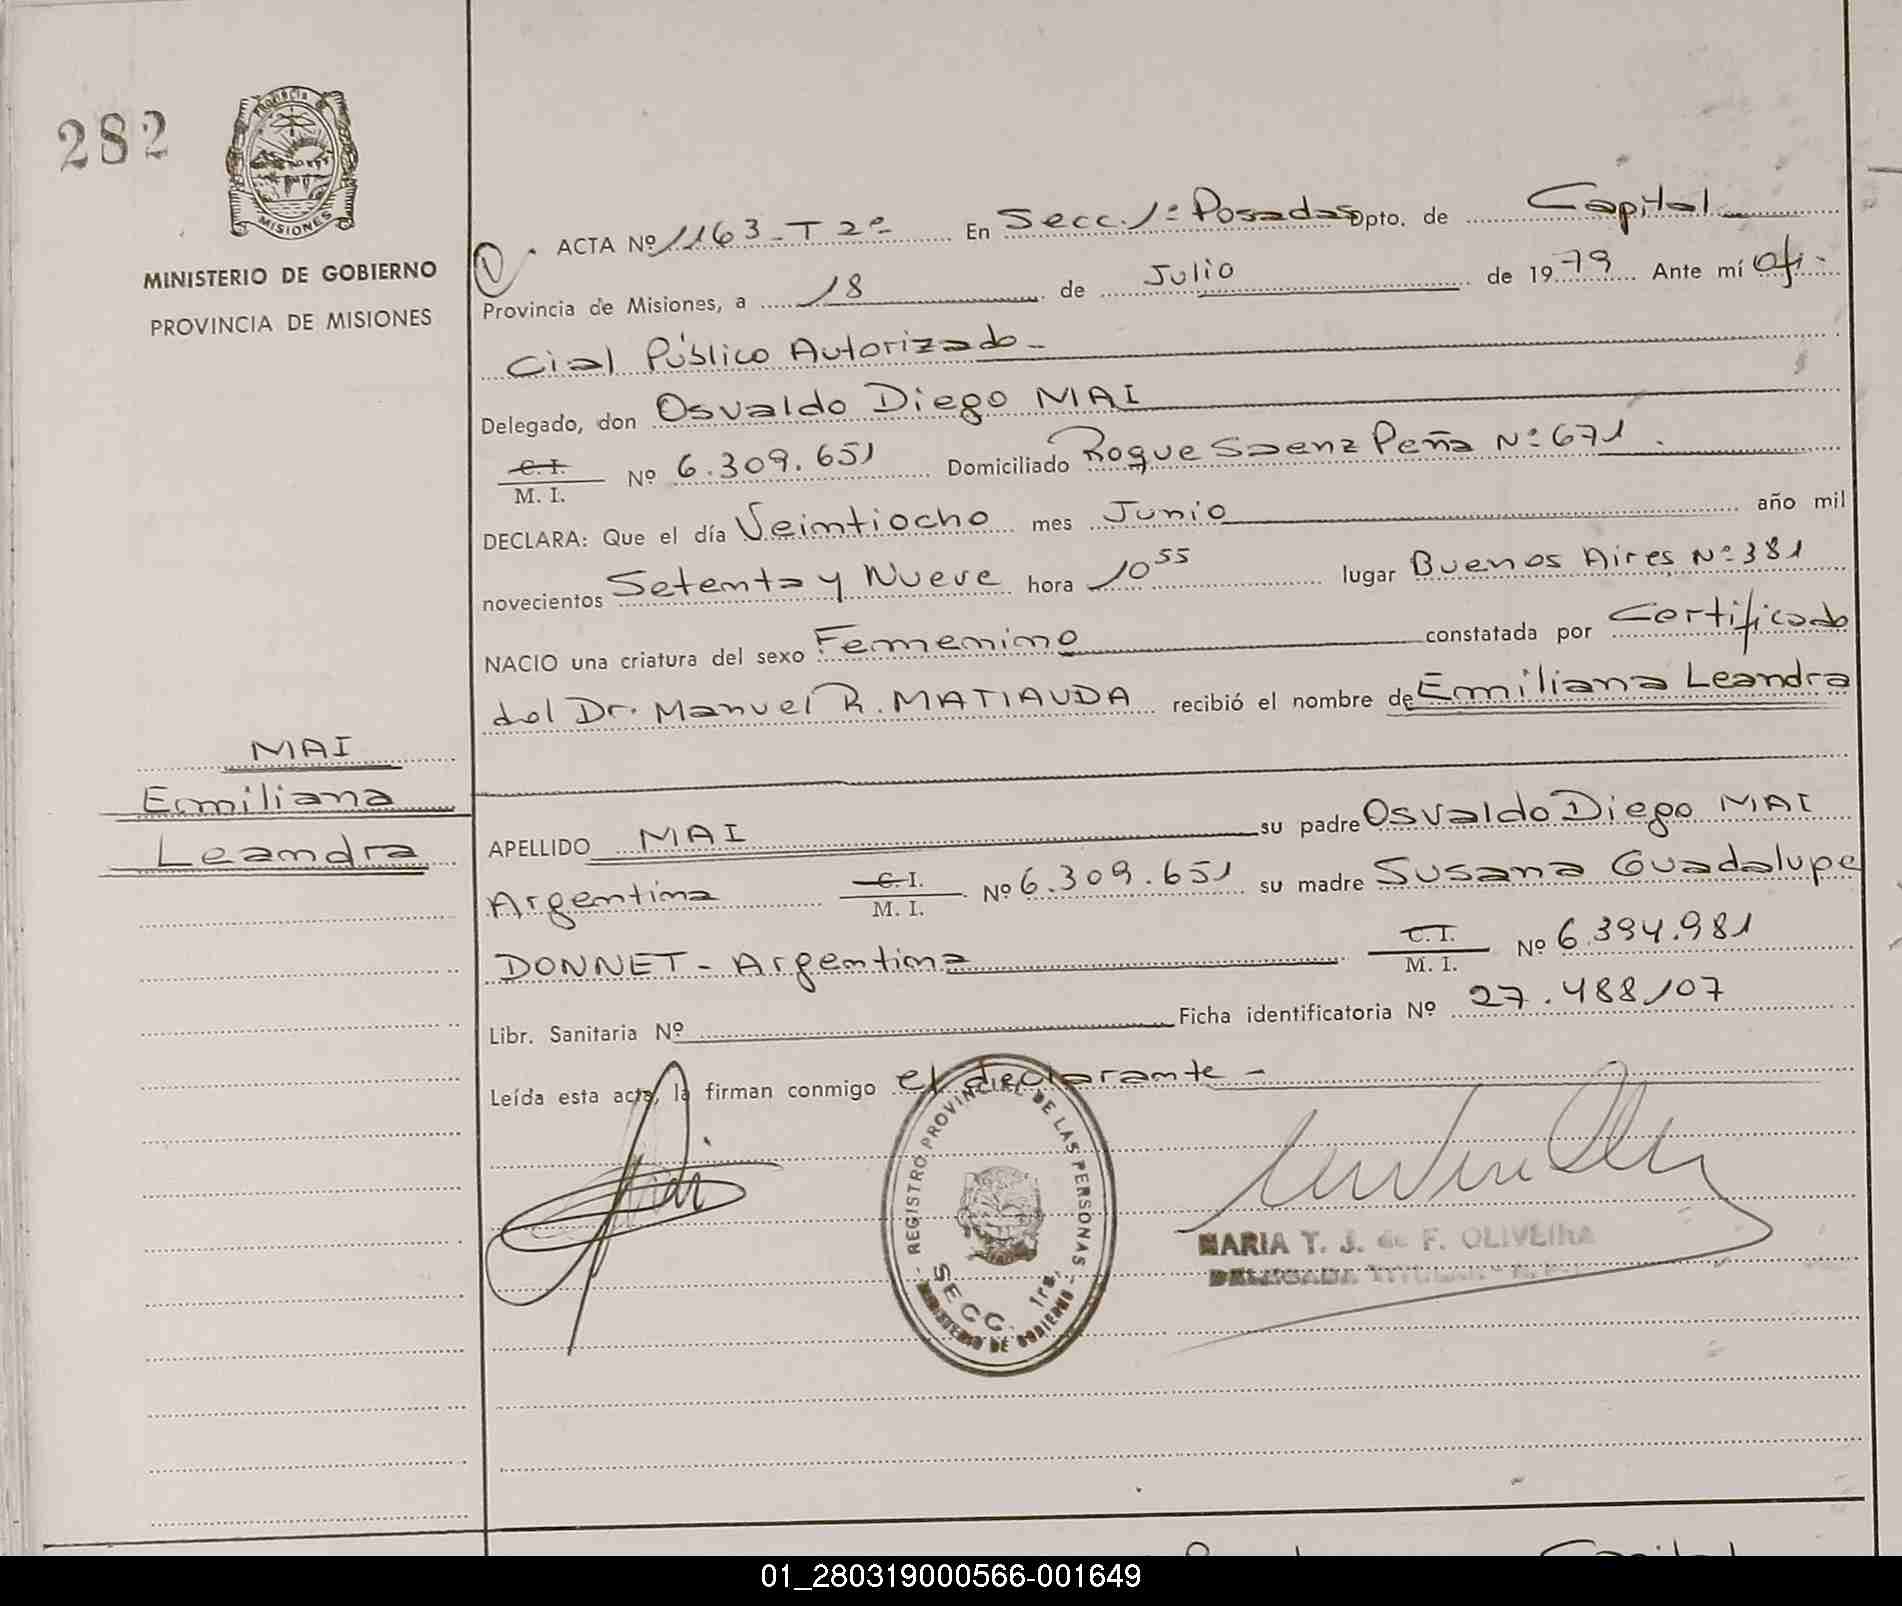 282
PROVINCIA DE
MISIONES
MINISTERIO DE GOBIERNO
PROVINCIA DE MISIONES
ACTA Nº 1163-T 2º En Secc. 1º Posadas Dpto. de Capital
Provincia de Misiones, a 18 de Julio de 1979 Ante mí Ofi-
cial Público Autorizado-
Delegado, don Osvaldo Diego MAI
C. I. / M. I. Nº 6.309.651 Domiciliado Roque Saenz Peña Nº 671.
DECLARA: Que el día Veintiocho mes Junio año mil
novecientos Setenta y Nueve hora 10 55 lugar Buenos Aires Nº 381
NACIO una criatura del sexo Femenino constatada por Certificado
del Dr. Manuel R. MATIAUDA recibió el nombre de Emiliana Leandra
MAI
Emiliana
Leandra
APELLIDO MAI su padre Osvaldo Diego MAI
Argentina C. I. / M. I. Nº 6.309.651 su madre Susana Guadalupe
DONNET - Argentina C. I. / M. I. Nº 6.394.981
Libr. Sanitaria Nº Ficha identificatoria Nº 27.488.107
Leída esta acta, la firman conmigo el declarante -
REGISTRO PROVINCIAL DE LAS PERSONAS
SECC. 1ra.
MINISTERIO DE GOBIERNO
MARIA T. J. de F. OLIVEIRA
DELEGADA TITULAR
Capital
01_280319000566-001649